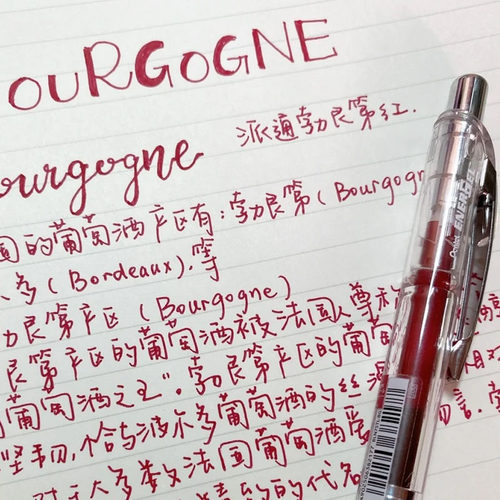 OURGOGNE
派通勃艮第红.
ourgogne
的葡萄酒产区有:勃艮第(Bourgogn
多(Bordeaux).等
艮第产区(Bourgogne)
艮第产区的葡萄酒被法国人尊称
葡萄酒之王".勃艮第产区的葡萄
坚韧,恰与波尔多葡萄酒的丝
大多数法国葡萄酒爱
的代名
Pentel ENERGEL